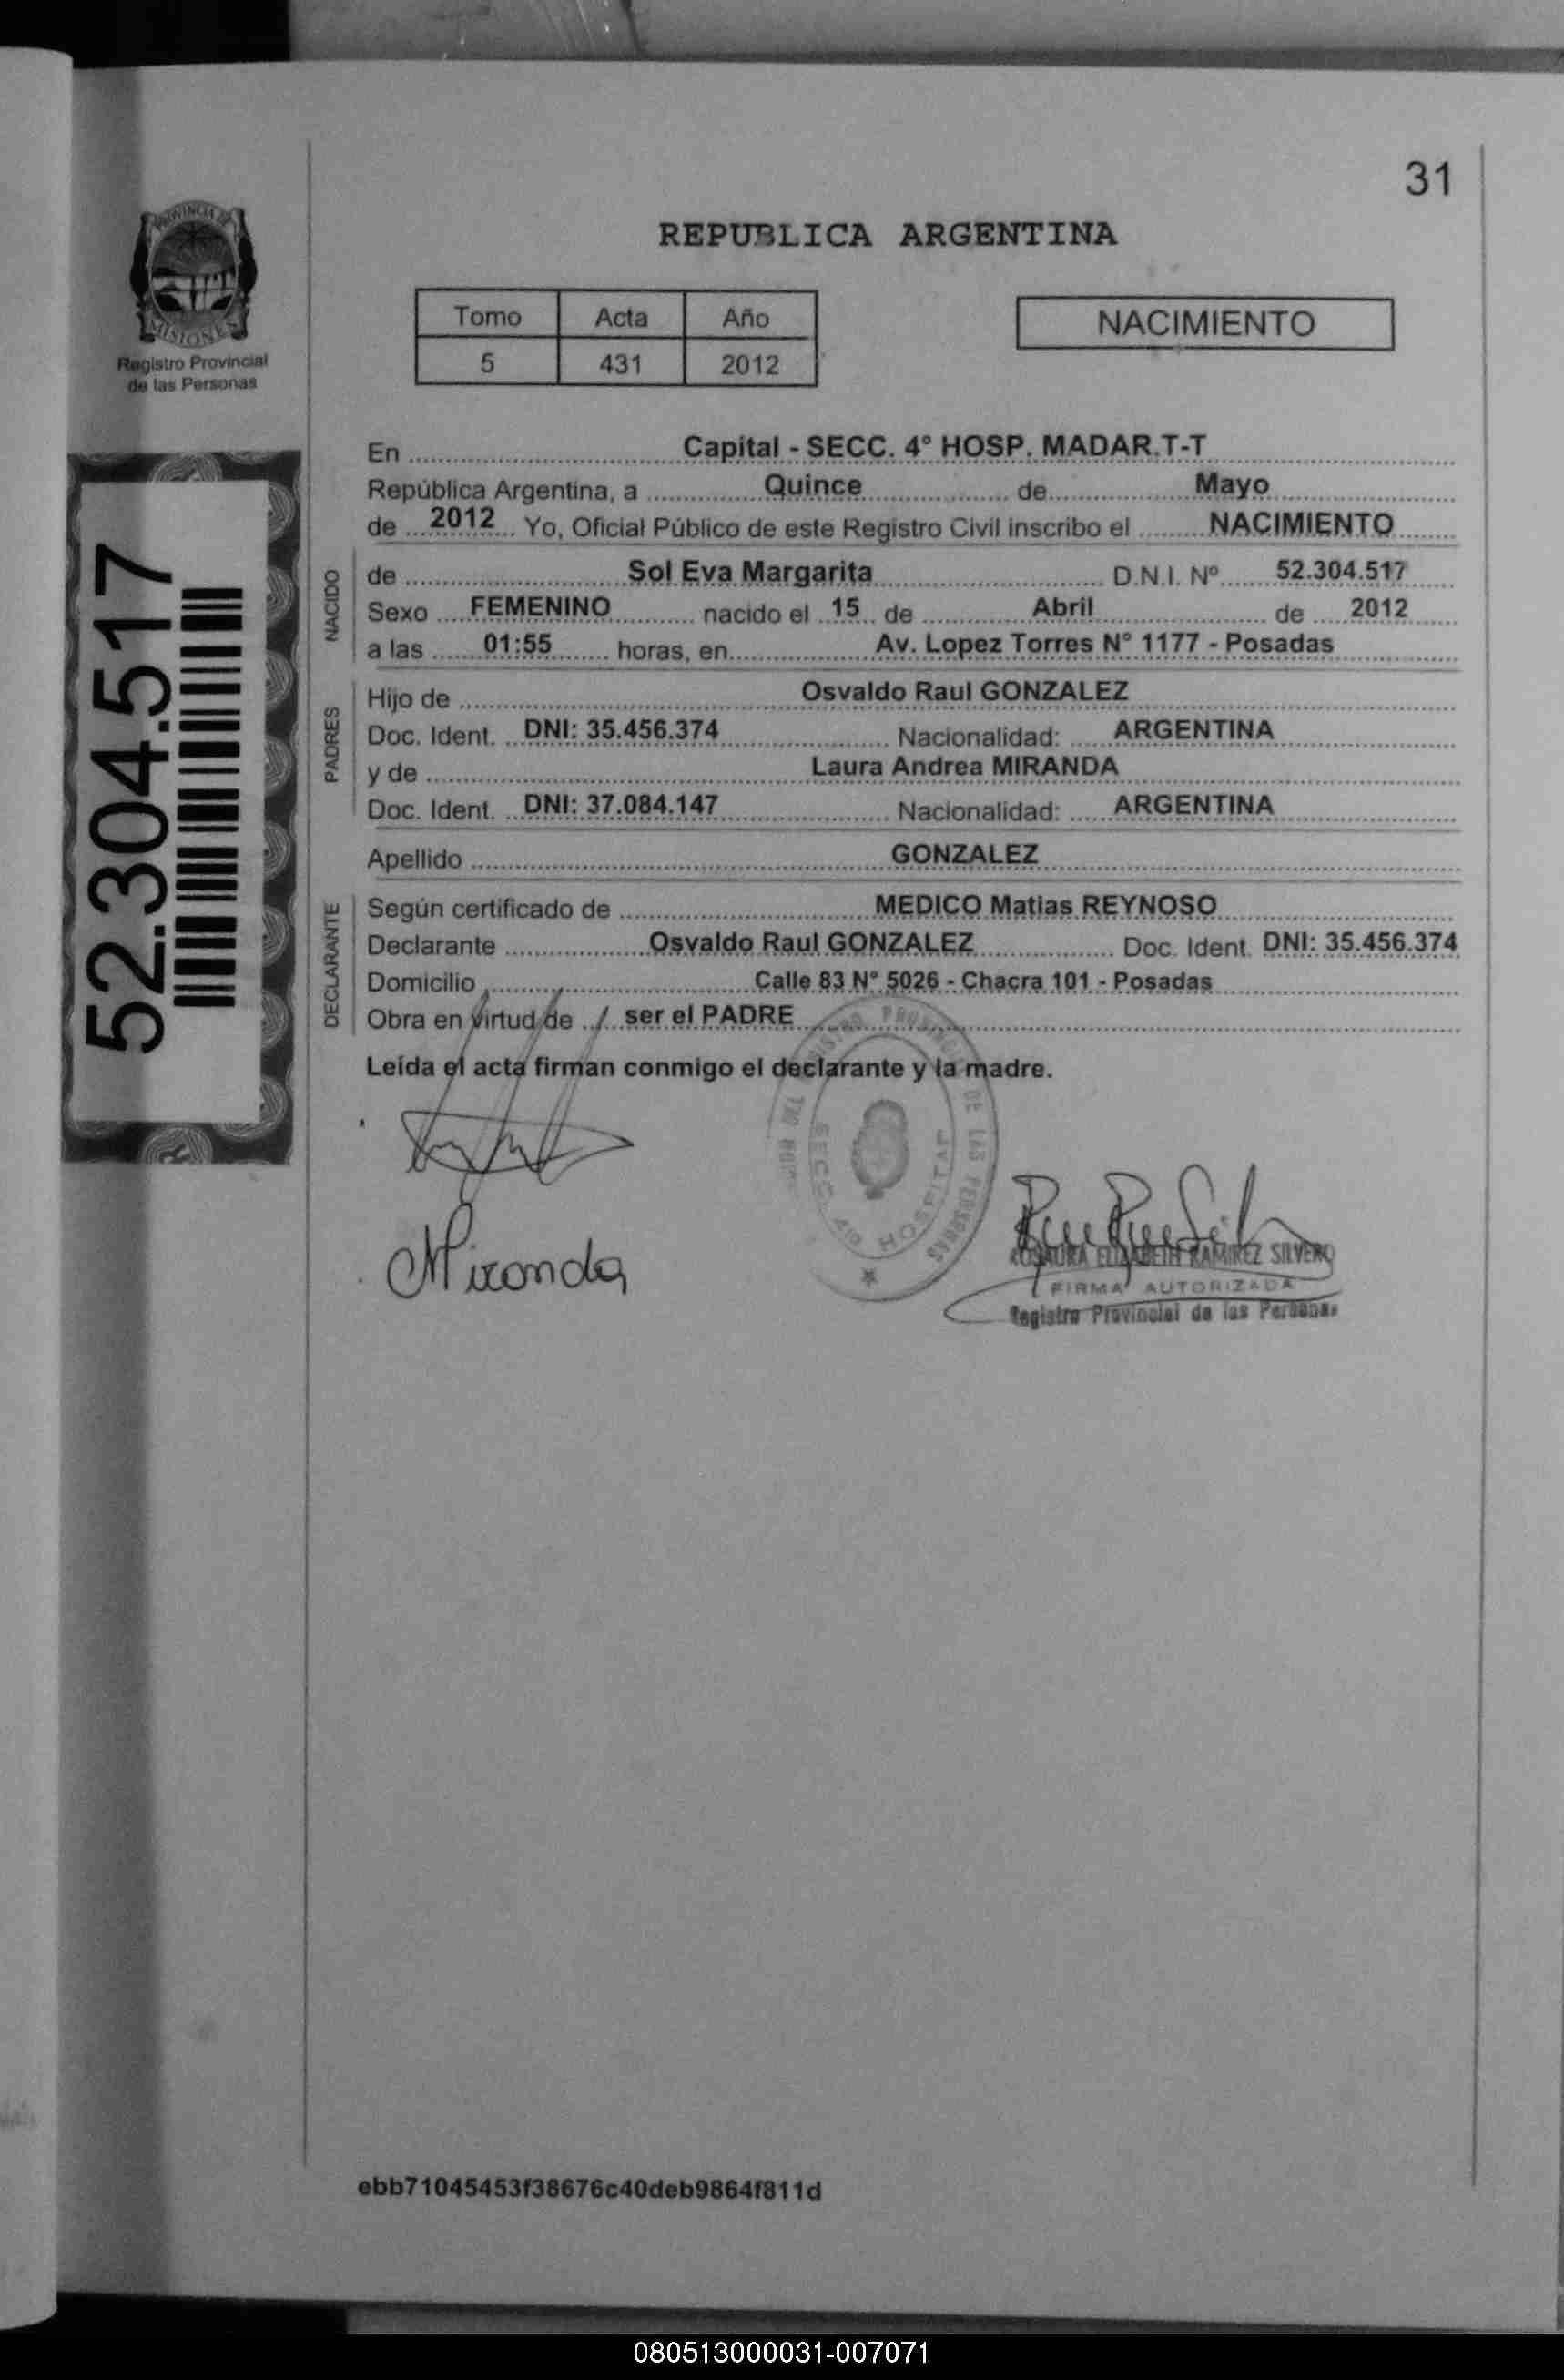 31
PROVINCIA DE
MISIONES
Registro Provincial
de las Personas
REPUBLICA ARGENTINA
Tomo Acta Año
5 431 2012
NACIMIENTO
52.304.517
En Capital - SECC. 4° HOSP. MADAR.T-T
República Argentina, a Quince de Mayo
de 2012 Yo, Oficial Público de este Registro Civil inscribo el NACIMIENTO
NACIDO
de Sol Eva Margarita D.N.I. Nº 52.304.517
Sexo FEMENINO nacido el 15 de Abril de 2012
a las 01:55 horas, en Av. Lopez Torres N° 1177 - Posadas
PADRES
Hijo de Osvaldo Raul GONZALEZ
Doc. Ident. DNI: 35.456.374 Nacionalidad: ARGENTINA
y de Laura Andrea MIRANDA
Doc. Ident. DNI: 37.084.147 Nacionalidad: ARGENTINA
Apellido GONZALEZ
DECLARANTE
Según certificado de MEDICO Matias REYNOSO
Declarante Osvaldo Raul GONZALEZ Doc. Ident. DNI: 35.456.374
Domicilio Calle 83 N° 5026 - Chacra 101 - Posadas
Obra en virtud de ser el PADRE
Leída el acta firman conmigo el declarante y la madre.
DE LAS PERSONAS
SECC. 4ta HOSPITAL
Miranda
ROSAURA ELIZABETH RAMIREZ SILVERO
FIRMA AUTORIZADA
Registro Provincial de las Personas
ebb71045453f38676c40deb9864f811d
080513000031-007071